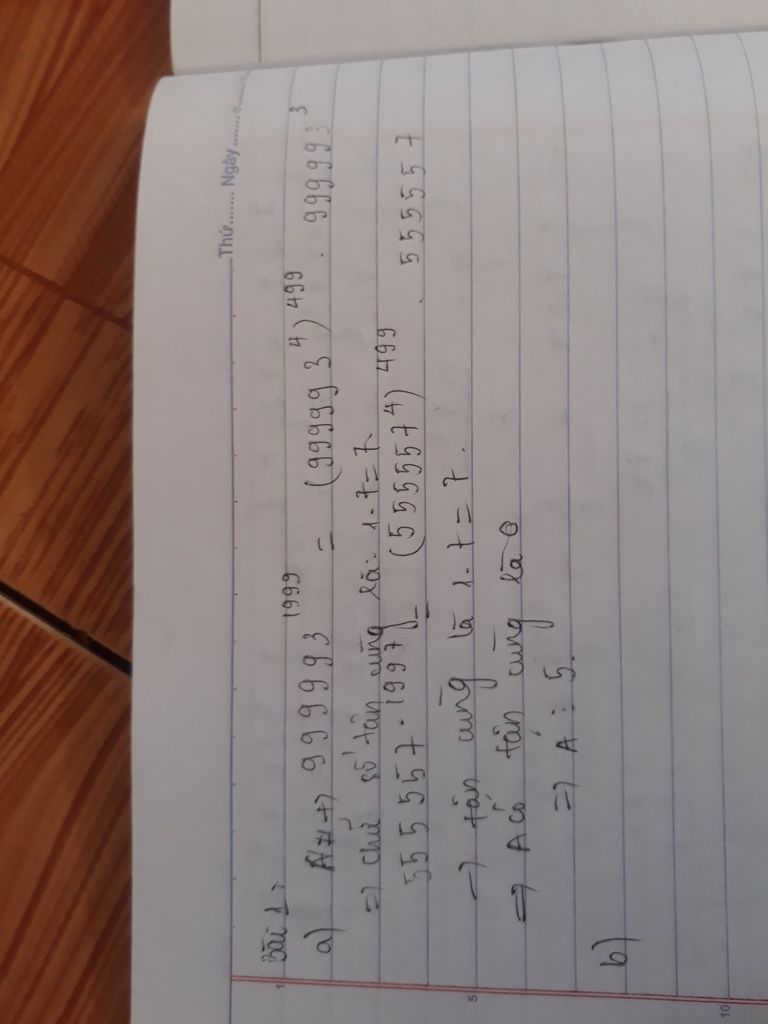 Thứ........ Ngày ........
Bài 1:
a) 999993^1999 = (999993^4)^499 . 999993^3
=> chữ số tận cùng là: 1.7=7.
555557^1997 = (555557^4)^499 . 555557
=> tận cùng là 1.7=7.
=> A có tận cùng là 0
=> A ⋮ 5.
b)
1
5
10